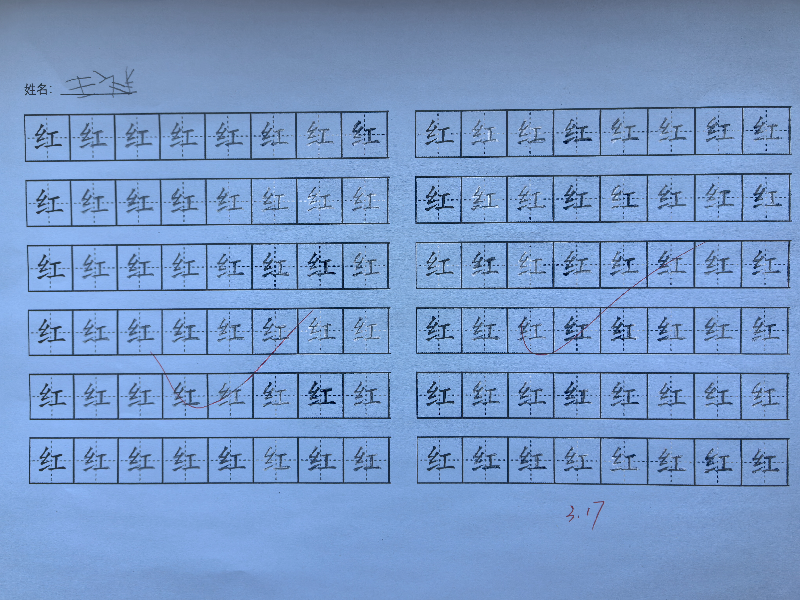 姓名:
红红红红红红红红
红红红红红红红红
红红红红红红红红
红红红红红红红红
红红红红红红红红
红红红红红红红红
红红红红红红红红
红红红红红红红红
红红红红红红红红
红红红红红红红红
红红红红红红红红
红红红红红红红红
3.17